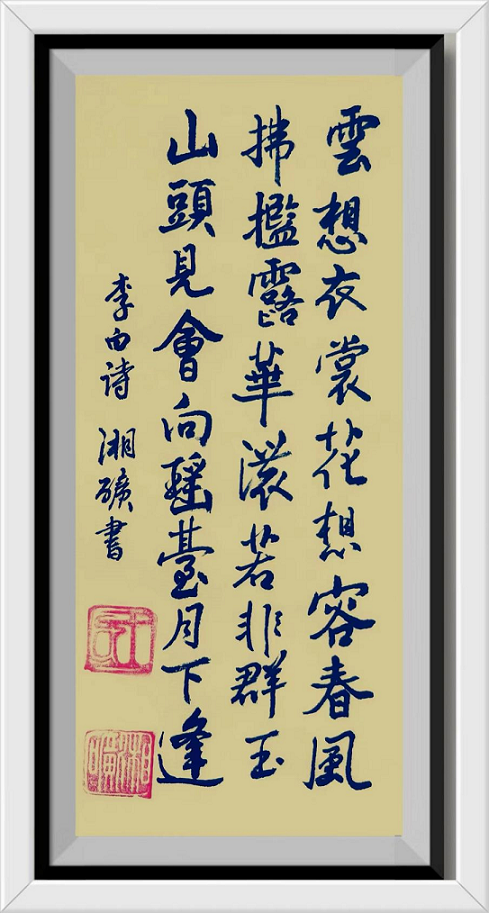 雲想衣裳花想容春風
拂檻露華濃若非群玉
山頭見會向瑤臺月下逢
李白詩 湘礦書
湘礦